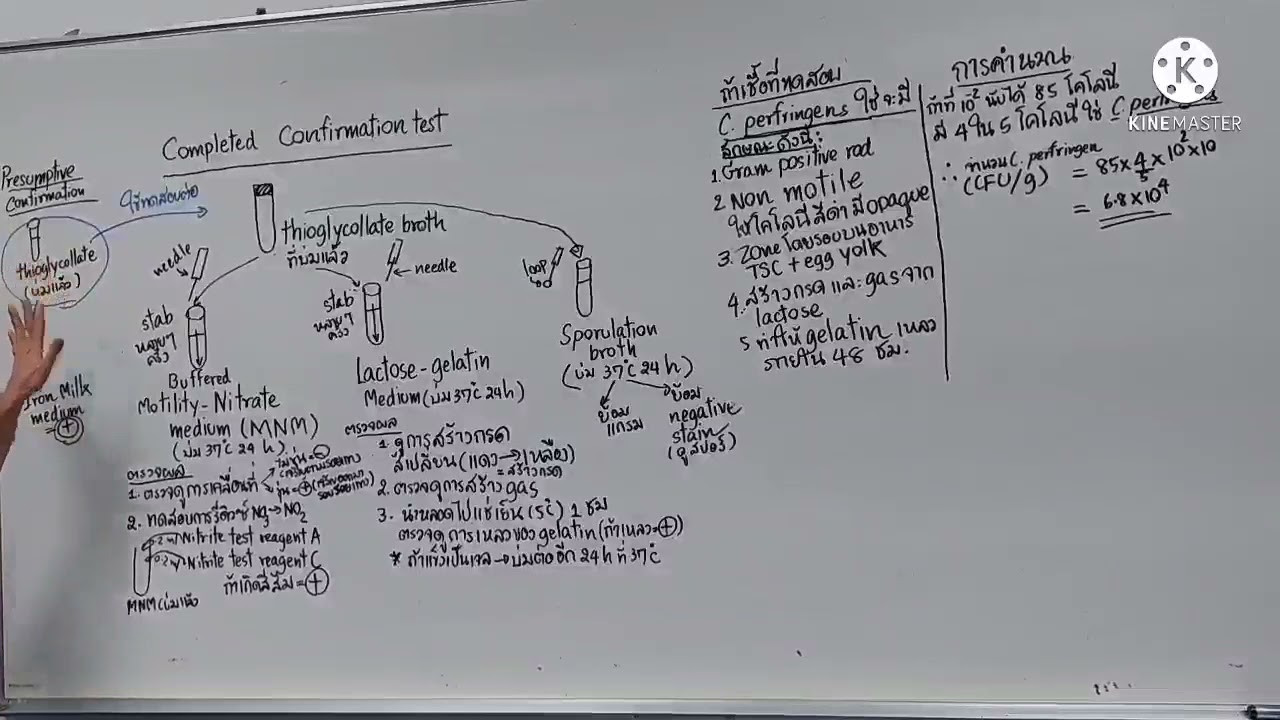 Completed Confirmation test
Presumptive
Confirmation
thioglycollate
(บ่มแล้ว)
ใช้ทดสอบต่อ
Iron Milk
medium
= +
thioglycollate broth
ที่บ่มแล้ว
needle
stab
หลายๆ
ครั้ง
Buffered
Motility-Nitrate
medium (MNM)
(บ่ม 37°C 24 h)
ตรวจผล
1. ตรวจดูการเคลื่อนที่
2. ทดสอบการรีดิวซ์ NO3→NO2
Nitrite test reagent A
Nitrite test reagent C
ถ้าเกิดสีส้ม = +
MNM
needle
stab
หลายๆ
ครั้ง
Lactose-gelatin
Medium (บ่ม 37°C 24h)
ตรวจผล
1. ดูการสร้างกรด
สีเปลี่ยน (แดง→เหลือง)
= สร้างกรด
2. ตรวจดูการสร้าง gas
3. นำหลอดไปแช่เย็น (5°C) 1 ชม
ตรวจดูการเหลวของ gelatin (ถ้าเหลว = +)
* ถ้าแข็งเป็นเจล → บ่มต่ออีก 24 h ที่ 37°C
loop
Sporulation
broth
(บ่ม 37°C 24 h)
ย้อม
แกรม
ย้อม
negative
stain
(ดูสปอร์)
ถ้าเชื้อที่ทดสอบ
C. perfringens ใช่ จะมี
ลักษณะดังนี้:
1. Gram positive rod
2 Non motile
ให้โคโลนีสีดำ มี opaque
3. Zone โดยรอบบนอาหาร
TSC + egg yolk
4. สร้างกรด และ gas จาก
lactose
5 ทำให้ gelatin เหลว
ภายใน 48 ชม.
การคำนวน
ถ้าที่ 10-2 นับได้ 85 โคโลนี
มี 4 ใน 5 โคโลนี ใช่ C. perfringens
∴ จำนวน C. perfringen
(CFU/g) = 85 x 4/5 x 10^2 x 10
= 6.8 x 10^4
KINEMASTER